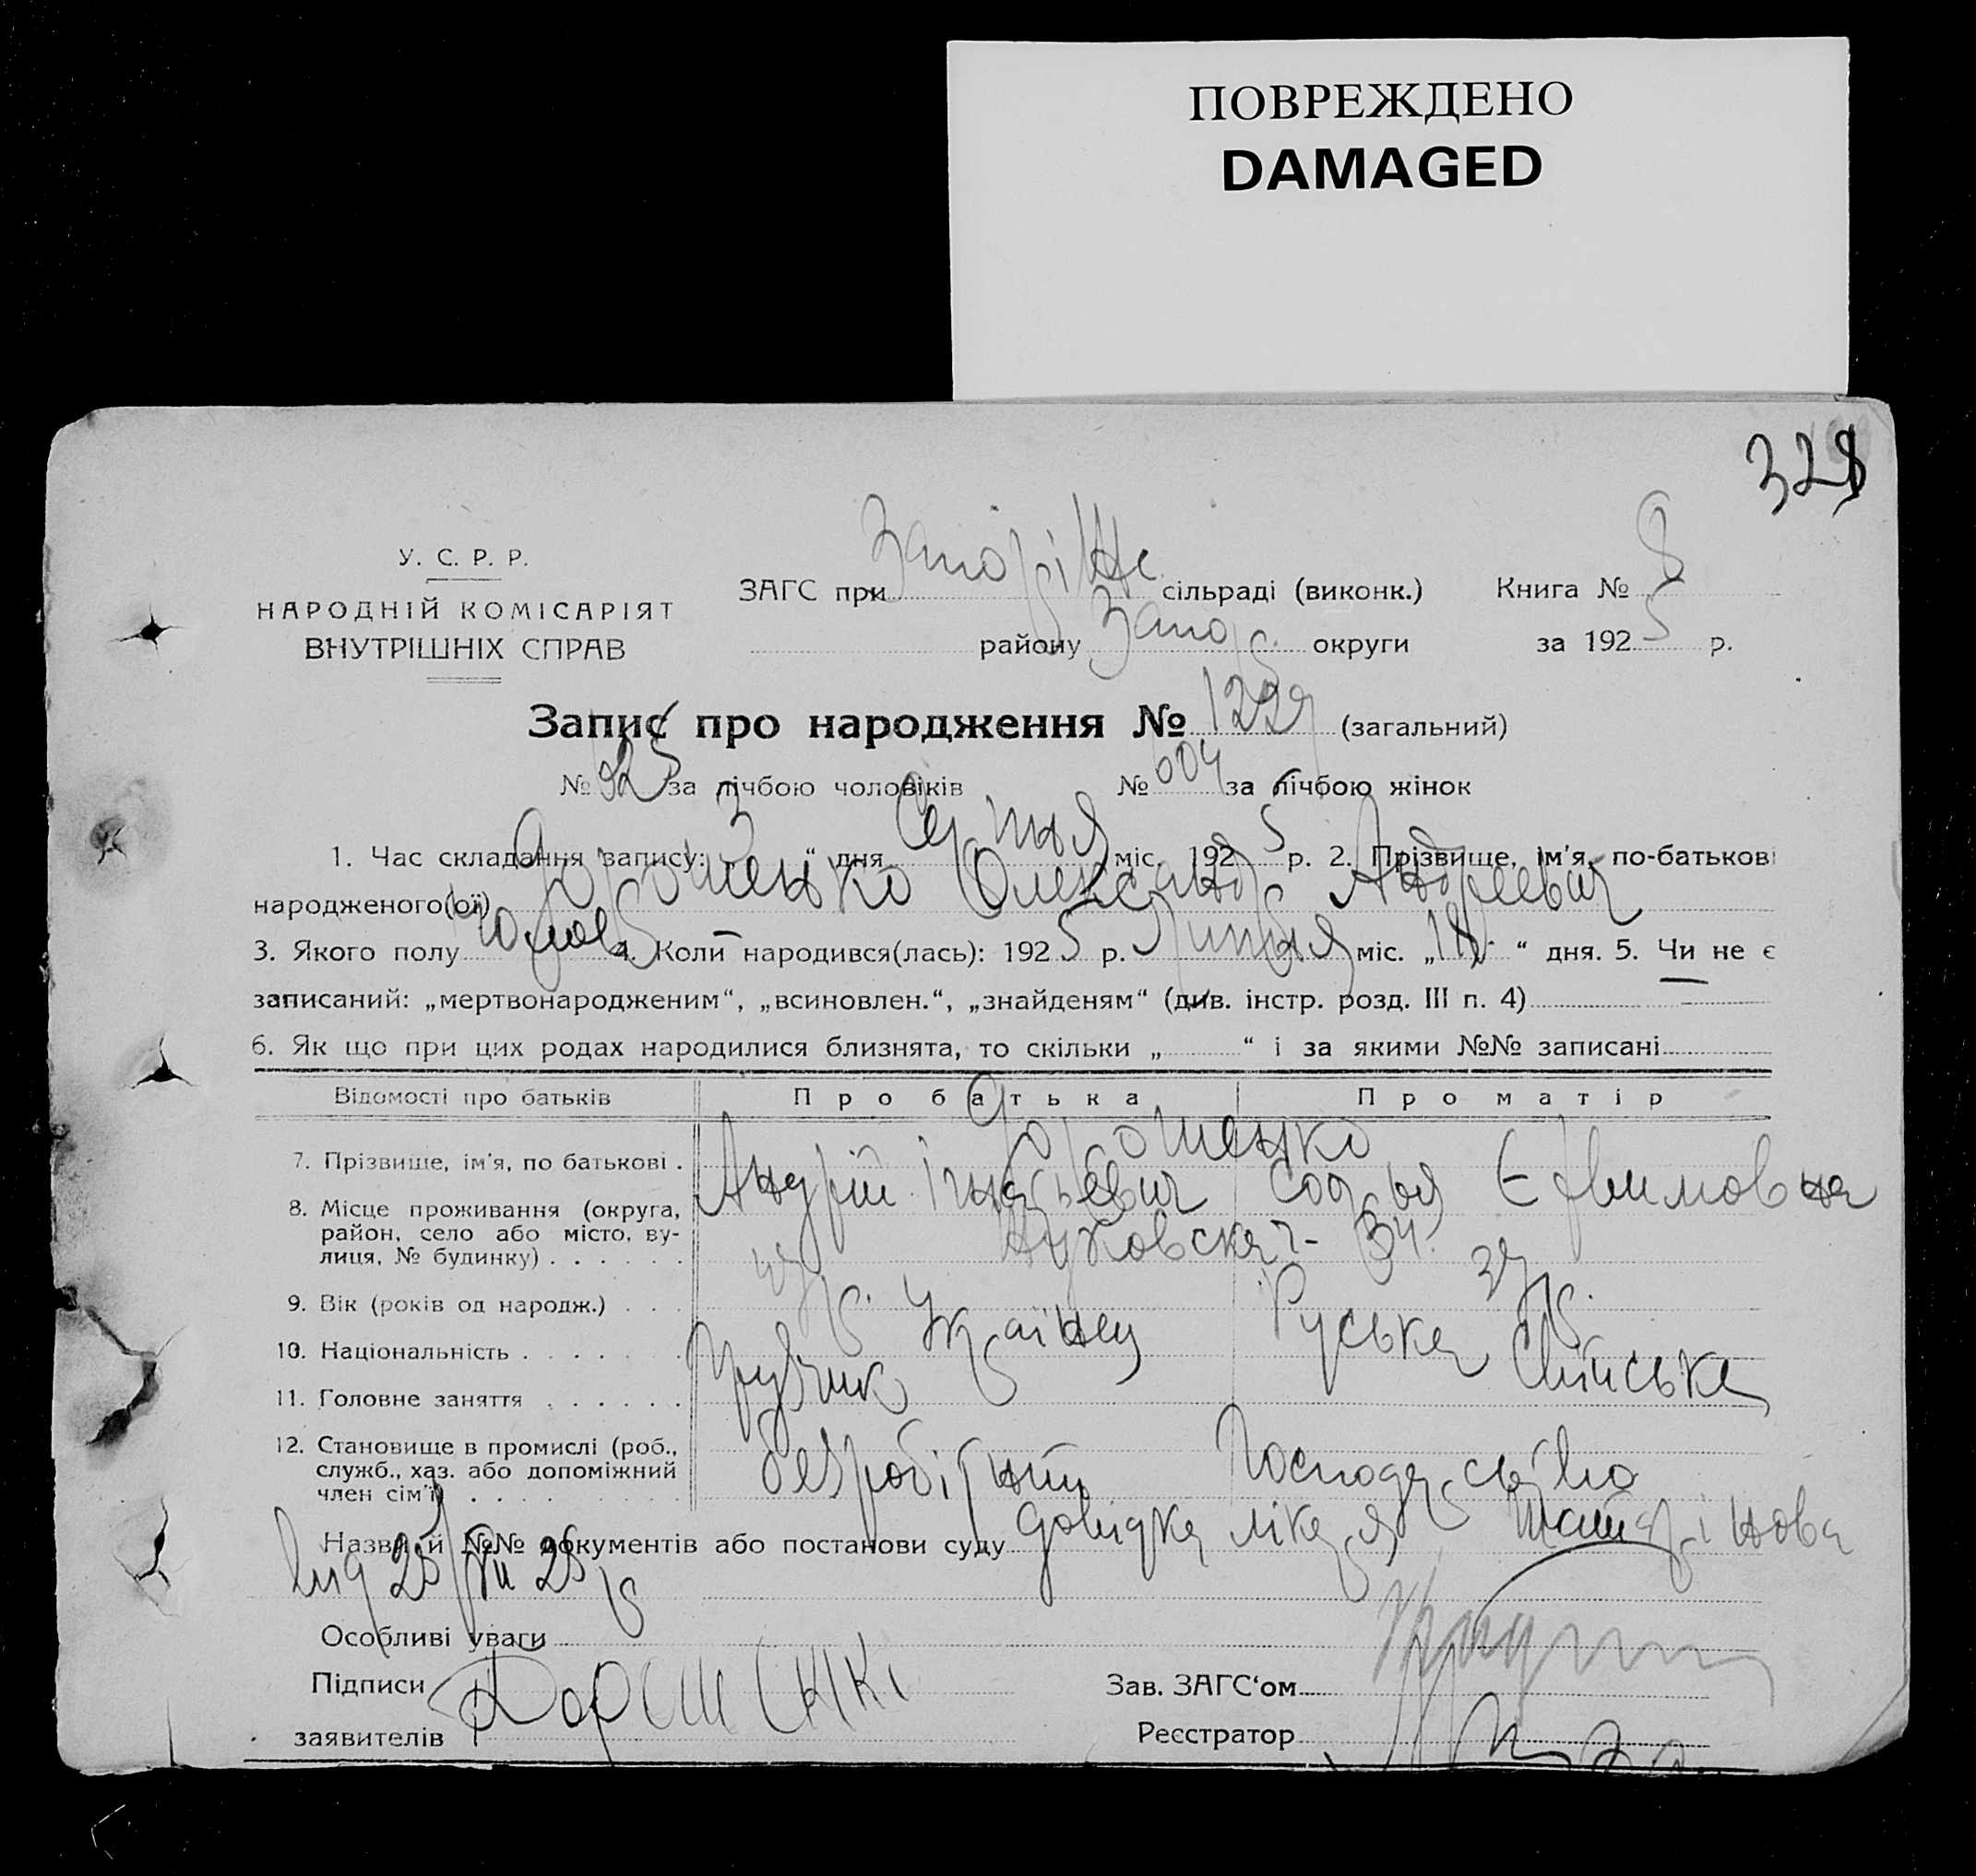 ПОВРЕЖДЕНО
DAMAGED
328
У. С. Р. Р.
НАРОДНІЙ КОМІСАРІЯТ
ВНУТРІШНІХ СПРАВ
ЗАГС при сільраді (виконк.) Книга № 8
району Запор. округи за 1925 р.
Запис про народження № 1229 (загальний)
№ 625 за лічбою чоловіків № 604 за лічбою жінок
1. Час складання запису: 3 “ дня Серпня міс. 1925 р. 2. Прізвище, ім'я, по-батькові
народженого(ої) Дорошенко Олександр Андреевич
3. Якого полу чолов 4. Коли народився(лась): 1925 р. Липня міс. „18 “ дня. 5. Чи не є
записаний: „мертвонародженим“, „всиновлен.“, „знайденям“ (див. інстр. розд. III п. 4)
6. Як що при цих родах народилися близнята, то скільки „ “ і за якими №№ записані
Відомості про батьків Про батька Про матір
Дорошенко
7. Прізвище, ім'я, по батькові . Андрій Ігнатьевич Софья Єфимовна
8. Місце проживання (округа,
район, село або місто, ву-
лиця, № будинку) . . . . . .
9. Вік (років од народж.) . . .
10. Національність . . . . . . . Українец Руська
11. Головне заняття . . . . . .
12. Становище в промислі (роб.,
служб., хаз. або допоміжний
член сім'ї) . . . . . . . . . безробітний Господарство
Назви й №№ документів або постанови суду Довидка лікаря
від 25/VII 25 р
Особливі уваги
Підписи
заявителів
Зав. ЗАГС‘ом
Реєстратор